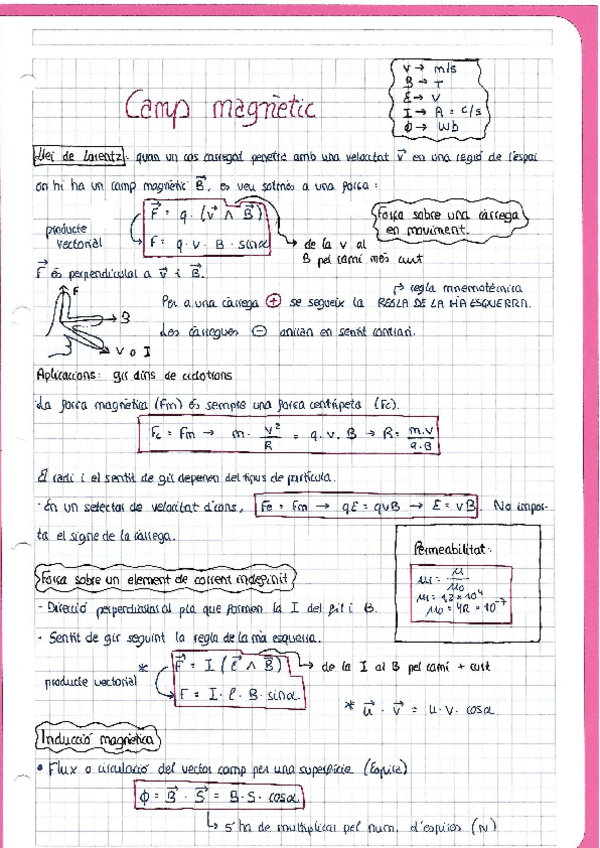 V → m/s
B → T
E → V
I → A = C/s
Φ → Wb
Camp magnètic
Llei de Lorentz: quan un cos carregat penetra amb una velocitat v⃗ en una regió de l'espai
on hi ha un camp magnètic B⃗, es veu sotmès a una força:
F⃗ = q · (v⃗ ∧ B⃗)
producte vectorial
F = q · v · B · sinα
de la v al B pel camí més curt
Força sobre una càrrega en moviment.
F⃗ és perpendicular a v⃗ i B⃗.
regla mnemotècnica
Per a una càrrega ⊕ se segueix la REGLA DE LA MÀ ESQUERRA.
Les càrregues ⊖ aniran en sentit contrari.
F
B
V o I
Aplicacions: gir dins de ciclotrons
La força magnètica (Fm) és sempre una força centrípeta (Fc).
Fc = Fm → m · v²/R = q · v · B → R = m·v/q·B
El radi i el sentit de gir depenen del tipus de partícula.
· En un selector de velocitat d'ions, Fe = Fm → qE = qvB → E = vB. No impor-
ta el signe de la càrrega.
Permeabilitat:
μr = μ/μ0
μ0 = 4π · 10⁻⁷
Força sobre un element de corrent indefinit
- Direcció perpendicular al pla que formen la I del fil i B.
- Sentit de gir seguint la regla de la mà esquerra.
* F⃗ = I (ℓ⃗ ∧ B⃗)
de la I al B pel camí + curt
producte vectorial
F = I · ℓ · B · sinα
* u⃗ · v⃗ = u · v · cosα
Inducció magnètica
• Flux o circulació del vector camp per una superfície (Espira)
Φ = B⃗ · S⃗ = B · S · cosα
S'ha de multiplicar pel num. d'espires (N)